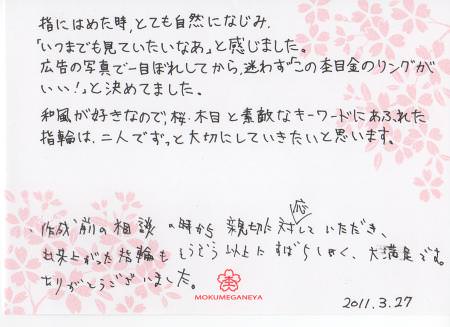 指にはめた時、とても自然になじみ、
「いつまでも見ていたいなあ」と感じました。
広告の写真で一目ぼれしてから、迷わず“この杢目金のリングが
いい!」と決めてました。
和風が好きなので、桜・木目と素敵なキーワードにあふれた
指輪は、二人でずっと大切にしていきたいと思います。
作成前の相談の時から親切に対応していただき、
出来上がった指輪もそうぞう以上にすばらしく、大満足です。
ありがとうございました。
MOKUMEGANEYA
2011.3.27